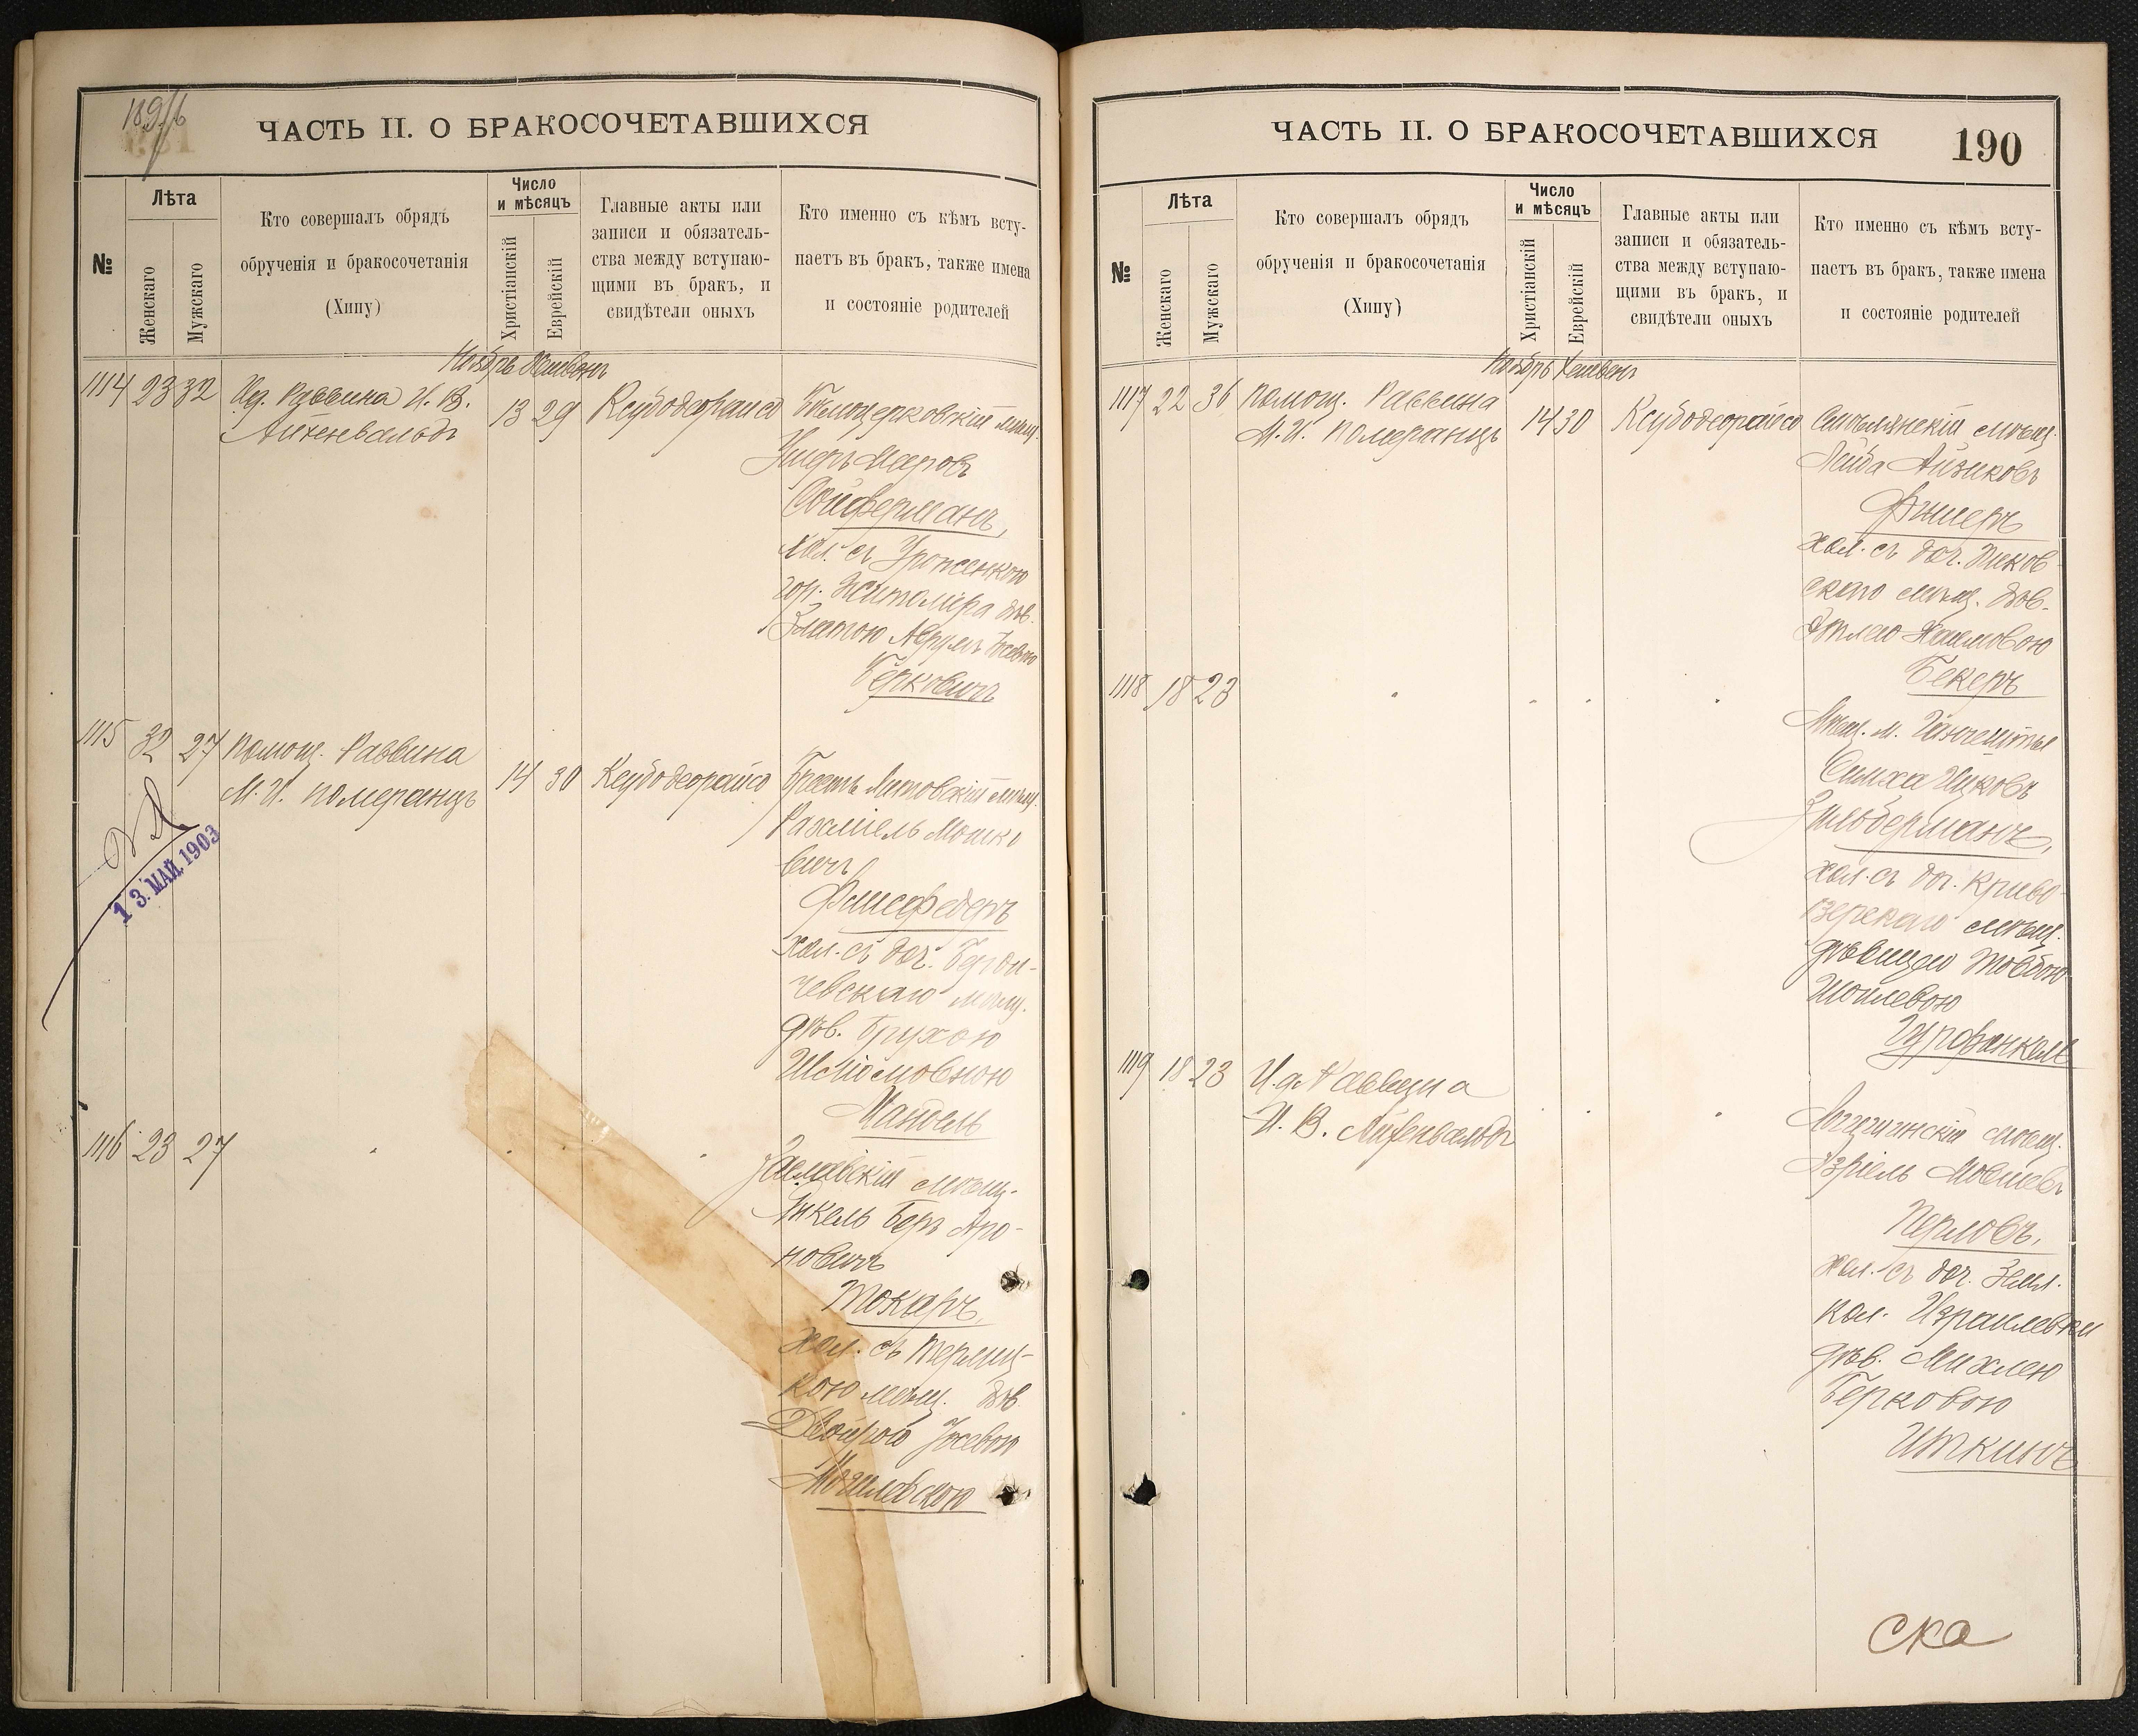 1896
ЧАСТЬ II. О БРАКОСОЧЕТАВШИХСЯ
№
Лѣта
Женскаго
Мужскаго
Кто совершалъ обрядъ
обрученія и бракосочетанія
(Хипу)
Число
и мѣсяцъ
Христіанскій
Еврейскій
Главные акты или
записи и обязатель-
ства между вступаю-
щими въ бракъ, и
свидѣтели оныхъ
Кто именно съ кѣмъ всту-
паетъ въ бракъ, также имена
и состояніе родителей
Ноябрь Хешвонъ
1114 23 32
Ид. Раввина И. В.
Айхенвальдъ
13 29
Ксубодеорайсо
Бѣлоцерковскій мѣщ.
Ушеръ Мееровъ
Сойферманъ,
хол. съ Уроженкою
гор. Житоміра дѣв.
Златою Аврумъ Іосевою
Берковичъ
1115 32 27
Помощ. Раввина
М. И. Померанцъ
14 30
Ксубодеорайсо
Брестъ Литовскій мѣщ.
Рахміель Мошко
вичъ
Флисфедеръ
хол. съ доч. Берди-
чевскаго мѣщ.
дѣв. Брухою
Шліомовною
Мандель
13. МАЙ 1903
1116 23 27
Заславскій мѣщ.
Янкель Беръ Аро-
новичъ
Токаръ,
хол. съ Терлиц-
кою мѣщ. дѣв.
Двойрою Іосевою
Могилевскою
ЧАСТЬ II. О БРАКОСОЧЕТАВШИХСЯ
190
№
Лѣта
Женскаго
Мужскаго
Кто совершалъ обрядъ
обрученія и бракосочетанія
(Хипу)
Число
и мѣсяцъ
Христіанскій
Еврейскій
Главные акты или
записи и обязатель-
ства между вступаю-
щими въ бракъ, и
свидѣтели оныхъ
Кто именно съ кѣмъ всту-
паетъ въ бракъ, также имена
и состояніе родителей
Ноябрь Хешвонъ
1117 22 36
Помощ. Раввина
М. И. Померанцъ
14 30
Ксубодеорайсо
мѣщ.
Лейба Айзиковъ
Фишеръ
хол. съ доч. Янов-
скаго мѣщ. дѣв.
Этлею Хаимовою
Бекеръ
1118 18 23
Мѣщ. м. Ганчешты
Симха Ицковъ
Зильберманъ,
хол. съ доч. Криво-
зерскаго мѣщ.
дѣвицею Товбою
Шойлевою
Гурфинкель
1119 18 23
И. д. Раввина
И. В. Айхенвальдъ
мѣщ.
Азріель Мовшевъ
Перловъ,
хол. съ доч. Земл.
кол. Израилевки
дѣв. Михлею
Берковою
Иткинъ
ска